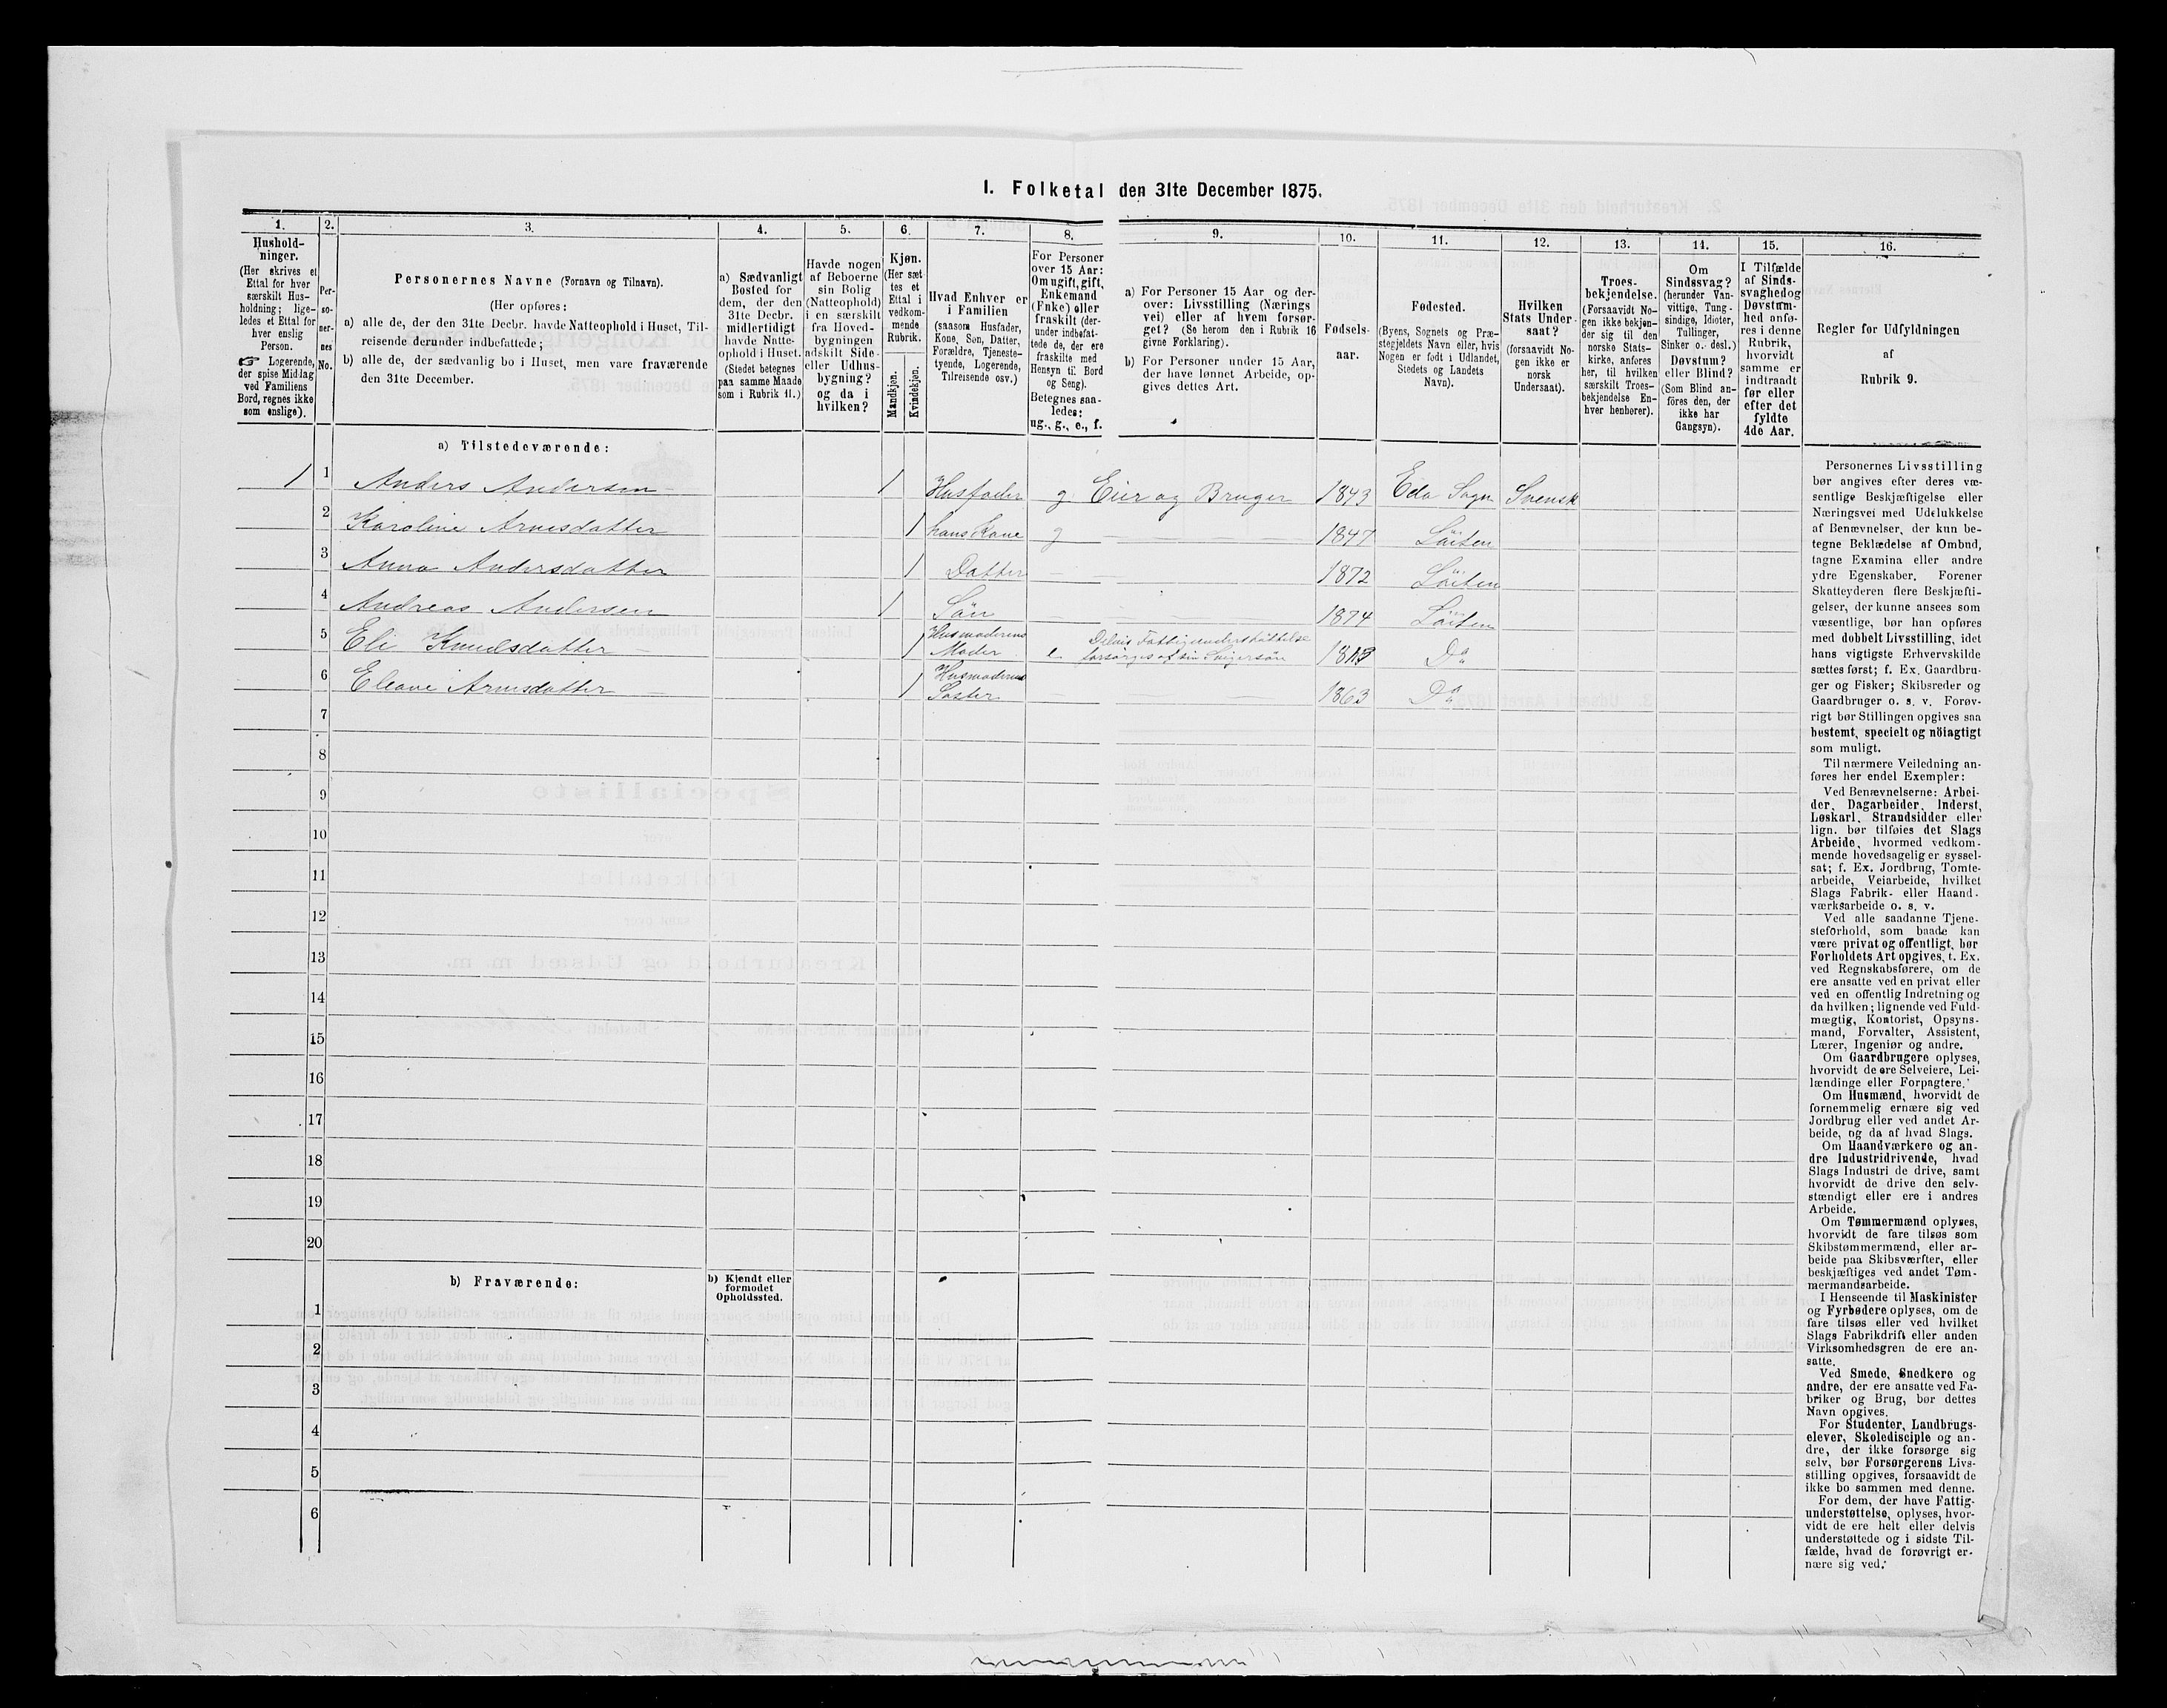 1. Folketal den 31te December 1875.
1.
Hushold-
ninger.
(Her skrives et
Ettal for hver
særskilt Hus-
holdning; lige-
ledes et Ettal for
hver enslig
Person.
☞ Logerende,
der spise Middag
ved Familiens
Bord, regnes ikke
som enslige).
2.
Per-
so-
ner-
nes
No.
3.
Personernes Navne (Fornavn og Tilnavn).
(Her opføres:
a) alle de, der den 31te Decbr. havde Natteophold i Huset, Til-
reisende derunder indbefattede;
b) alle de, der sædvanlig bo i Huset, men vare fraværende
den 31te December.
4.
a) Sædvanligt
Bosted for
dem, der den
31te Decbr.
midlertidigt
havde Natte-
ophold i Huset.
(Stedet betegnes
paa samme Maade
som i Rubrik 11.)
5.
Havde nogen
af Beboerne
sin Bolig
(Natteophold)
i en særskilt
fra Hoved-
bygningen
adskilt Side-
eller Udhus-
bygning?
og da i
hvilken?
6.
Kjøn.
(Her sæt
tes et
Ettal i
vedkom-
mende
Rubrik.
Mandkjøn.
Kvindekjøn.
7.
Hvad Enhver er
i Familien
(saasom Husfader,
Kone, Søn, Datter,
Forældre, Tjeneste-
tyende, Logerende,
Tilreisende osv.)
8.
For Personer
over 15 Aar:
Om ugift, gift,
Enkemand
(Enke) eller
fraskilt (der-
under indbefat-
tede de, der ere
fraskilte med
Hensyn til Bord
og Seng).
Betegnes saa-
ledes:
ug., g., e., f.
9.
a) For Personer 15 Aar og der-
over: Livsstilling (Nærings
vei) eller af hvem forsør-
get? (Se herom den i Rubrik 16
givne Forklaring).
b) For Personer under 15 Aar,
der have lønnet Arbeide, op-
gives dettes Art.
10.
Fødsels-
aar.
11.
Fødested.
(Byens, Sognets og Præ-
stegjeldets Navn eller, hvis
Nogen er født i Udlandet,
Stedets og Landets
Navn).
12.
Hvilken
Stats Under-
saat?
(forsaavidt No-
gen ikke er
norsk
Undersaat).
13.
Troes-
bekjendelse.
(Forsaavidt No-
gen ikke bekjen-
der sig til den
norske Stats-
kirke, anføres
her, til hvilken
særskilt Troes-
bekjendelse En-
hver henhører).
14.
Om
Sindssvag?
(herunder Van-
vittige, Tung-
sindige, Idioter,
Tullinger,
Sinker o. desl.)
Døvstum?
eller Blind?
(Som Blind an-
føres den, der
ikke har
Gangsyn).
15.
I Tilfælde
af Sinds-
svaghed og
Døvstum-
hed anfø-
res i denne
Rubrik,
hvorvidt
samme er
indtraadt
før eller
efter det
fyldte
4de Aar.
16.
Regler for Udfyldningen
af
Rubrik 9.
a) Tilstedeværende:
1 1 Anders Andersen 1 Husfader g Eier og Bruger 1843 Eda Sogn Svensk
2 Karoline Arnesdatter 1 hans Kone g 1847 Löiten
3 Anna Andersdatter 1 Datter 1872 Löiten
4 Andreas Andersen 1 Sön 1874 Löiten
5 Eli Knudsdatter 1 Husmoderens Moder e Delvis Fattigunderstöttelse
forsörges af sin Svigersön 1813 Do
6 Eleane Arnesdatter 1 Husmoderens Söster 1863 Do
7
8
9
10
11
12
13
14
15
16
17
18
19
20
b) Fraværende:
b) Kjendt eller
formodet
Opholdssted.
1
2
3
4
5
6
Personernes Livsstilling
bør angives efter deres væ-
sentlige Beskjæftigelse eller
Næringsvei med Udelukkelse
af Benævnelser, der kun be-
tegne Beklædelse af Ombud,
tagne Examina eller andre
ydre Egenskaber. Forener
Skatteyderen flere Beskjæfti-
gelser, der kunne ansees som
væsentlige, bør han opføres
med dobbelt Livsstilling, idet
hans vigtigste Erhvervskilde
sættes først; f. Ex. Gaardbru-
ger og Fisker; Skibsreder og
Gaardbruger o. s. v. Forøv-
rigt bør Stillingen opgives saa
bestemt, specielt og nöiagtigt
som muligt.
Til nærmere Veiledning an-
føres her endel Exempler:
Ved Benævnelserne: Arbei-
der, Dagarbeider, Inderst,
Løskarl, Strandsidder eller
lign. bør tilføies det Slags
Arbeide, hvormed vedkom-
mende hovedsagelig er syssel-
sat; f. Ex. Jordbrug, Tomte-
arbeide, Veiarbeide, hvilket
Slags Fabrik- eller Haand-
værksarbeide o. s. v.
Ved alle saadanne Tjene-
steforhold, som baade kan
være privat og offentligt, bør
Forholdets Art opgives, f. Ex.
ved Regnskabsførere, om de
ere ansatte ved en privat eller
ved en offentlig Indretning og
da hvilken; lignende ved Fuld-
mægtig, Kontorist, Opsyns-
mand, Forvalter, Assistent,
Lærer, Ingeniør og andre.
Om Gaardbrugere oplyses,
hvorvidt de ere Selveiere, Lei-
lændinge eller Forpagtere.
Om Husmænd, hvorvidt de
fornemmelig ernære sig ved
Jordbrug eller ved andet Ar-
beide, og da af hvad Slags.
Om Haandværkere og an-
dre Industridrivende, hvad
Slags Industri de drive, samt
hvorvidt de drive den selv-
stændigt eller ere i andres
Arbeide.
Om Tømmermænd oplyses,
hvorvidt de fare tilsøs som
Skibstømmermænd, eller ar-
beide paa Skibsværfter, eller
beskjæftiges ved andet Tøm-
mermandsarbeide.
I Henseende til Maskinister
og Fyrbødere oplyses, om de
fare tilsøs eller ved hvilket
Slags Fabrikdrift eller anden
Virksomhedsgren de ere an-
satte.
Ved Smede, Snedkere og
andre, der ere ansatte ved Fa-
briker og Brug, bør dettes
Navn opgives.
For Studenter, Landbrugs-
elever, Skoledisciple og an-
dre, der ikke forsørge sig
selv, bør Forsørgerens Livs-
stilling opgives, forsaavidt de
ikke bo sammen med denne.
For dem, der have Fattig-
understøttelse, oplyses, hvor-
vidt de ere helt eller delvis
understøttede og i sidste Til-
fælde, hvad de forøvrigt er-
nære sig ved.